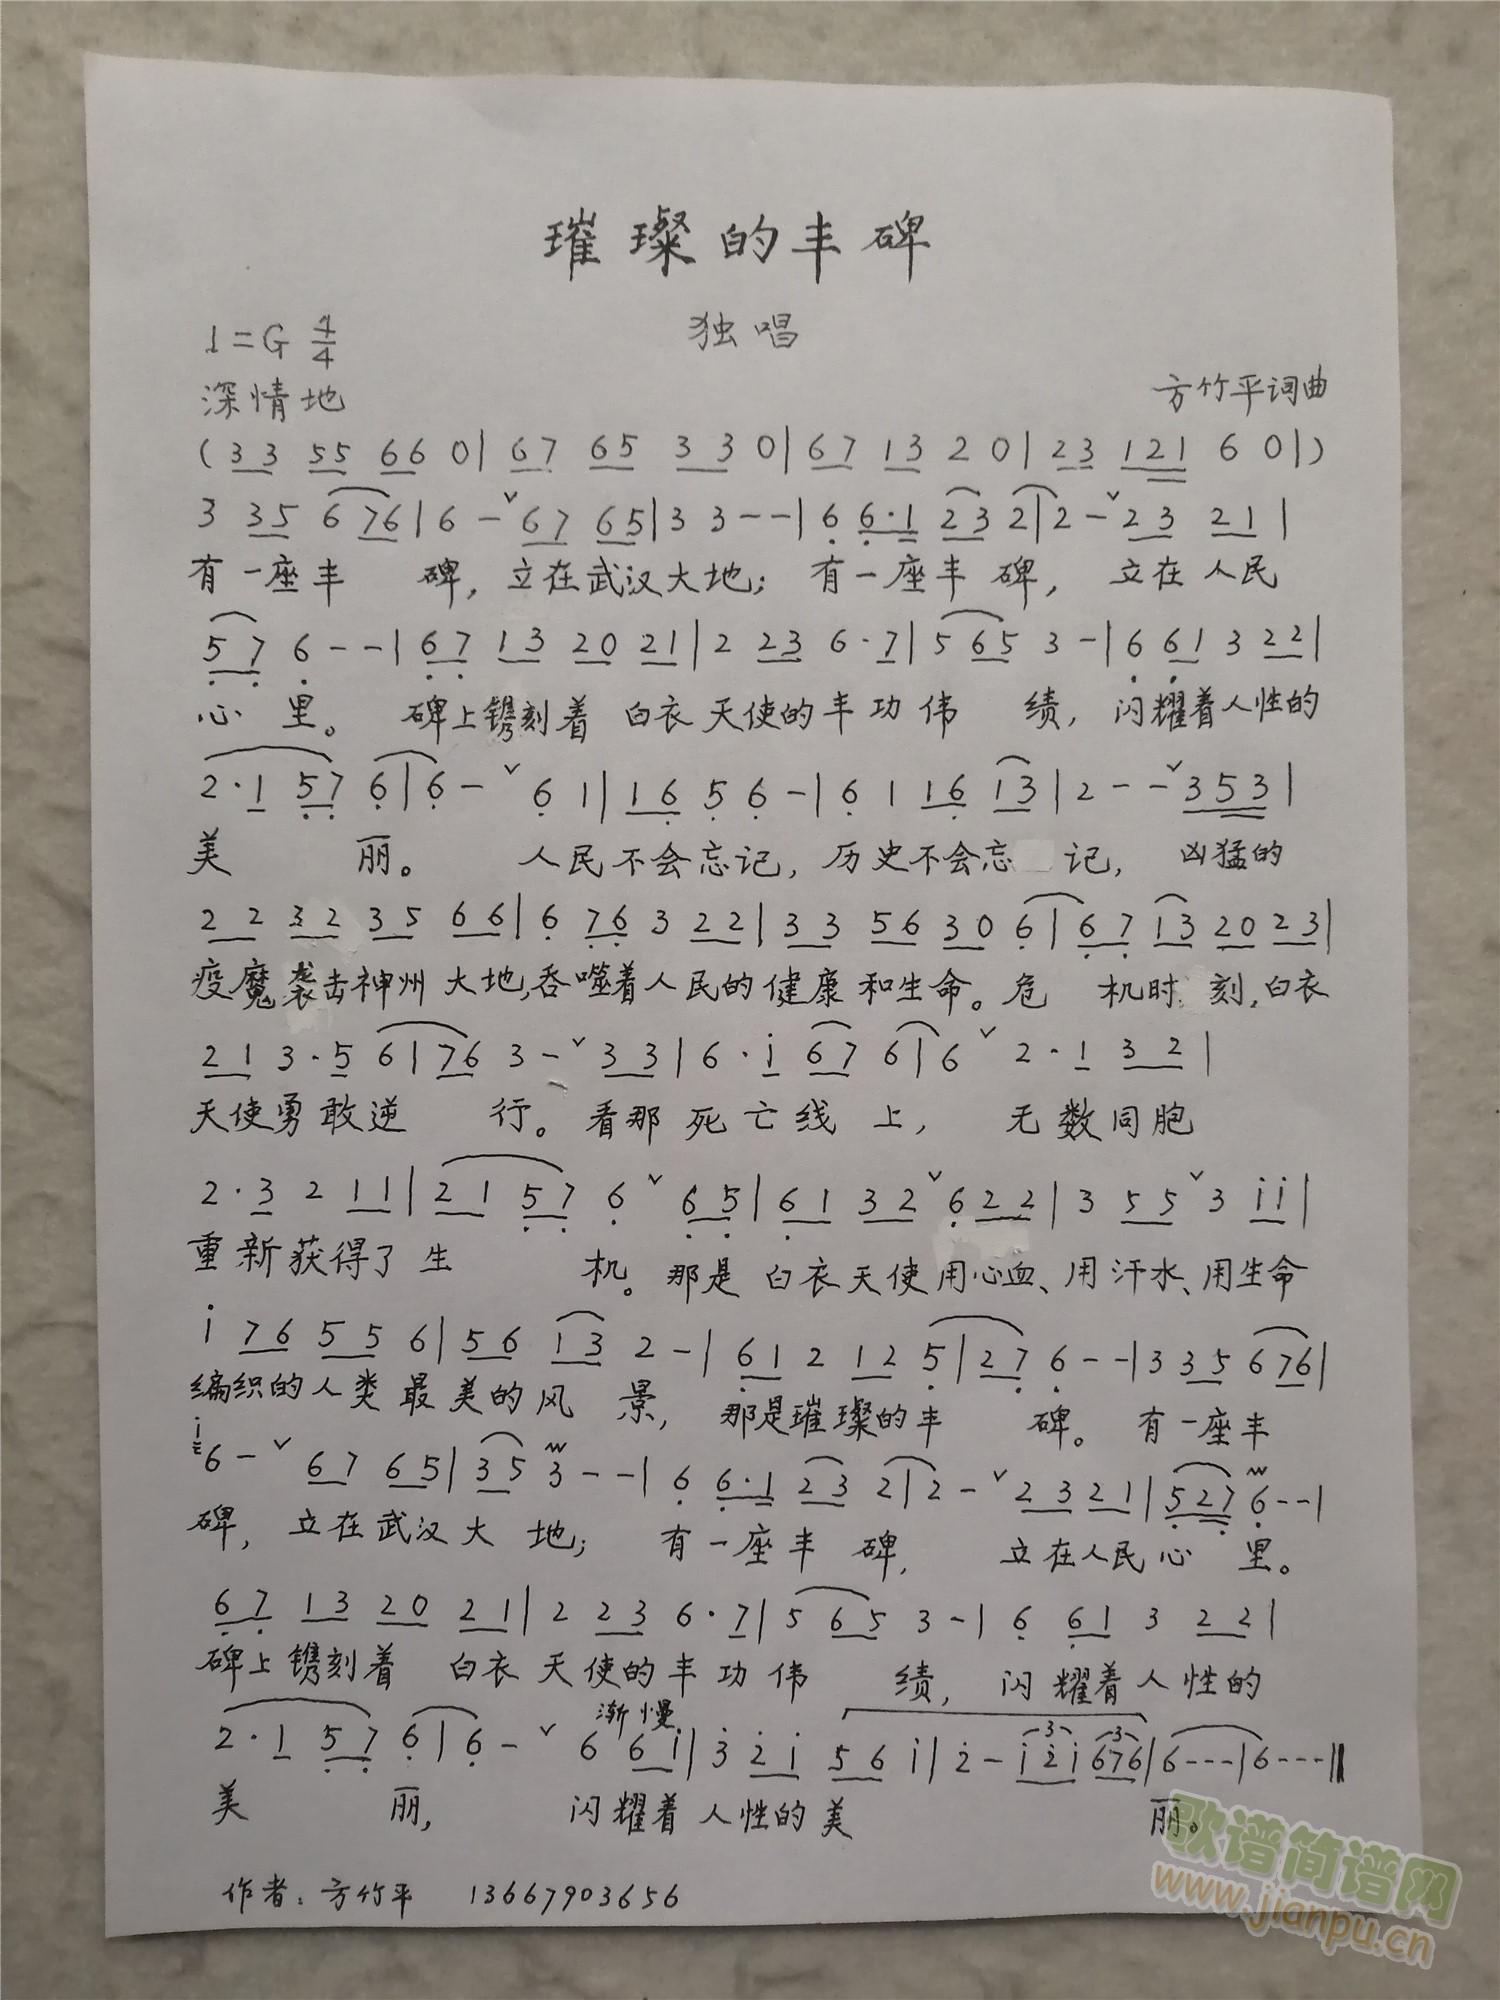 璀璨的丰碑
独唱
1=G 4/4
深情地
方竹平词曲
( 3 3 5 5 6 6 0 | 6 7 6 5 3 3 0 | 6 7 1 3 2 0 | 2 3 1 2 1 6 0 | )
3 3 5 6 7 6 | 6 - ˇ 6 7 6 5 | 3 3 - - | 6 6 · 1 2 3 2 | 2 - ˇ 2 3 2 1 |
有一座丰 碑，立在武汉大地；有一座丰碑，立在人民
5 7 6 - - | 6 7 1 3 2 0 2 1 | 2 2 3 6 · 7 | 5 6 5 3 - | 6 6 1 3 2 2 |
心里。 碑上镌刻着 白衣天使的丰功伟 绩，闪耀着人性的
2 · 1 5 7 6 | 6 - ˇ 6 1 | 1 6 5 6 - | 6 1 1 6 1 3 | 2 - - ˇ 3 5 3 |
美 丽。 人民不会忘记，历史不会忘 记， 凶猛的
2 2 3 2 3 5 6 6 | 6 7 6 3 2 2 | 3 3 5 6 3 0 6 | 6 7 1 3 2 0 2 3 |
疫魔袭击神州大地，吞噬着人民的健康和生命。危 机时刻，白衣
2 1 3 · 5 6 | 7 6 3 - ˇ 3 3 | 6 · i 6 7 6 | 6 ˇ 2 · 1 3 2 |
天使勇敢逆 行。看那死亡线上， 无数同胞
2 · 3 2 1 1 | 2 1 5 7 6 ˇ 6 5 | 6 1 3 2 ˇ 6 2 2 | 3 5 5 ˇ 3 i i |
重新获得了生 机。那是白衣天使用心血、用汗水、用生命
i 7 6 5 5 6 | 5 6 1 3 2 - | 6 1 2 1 2 5 | 2 7 6 - - | 3 3 5 6 7 6 |
编织的人类最美的风 景， 那是璀璨的丰 碑。有一座丰
i 6 - ˇ 6 7 6 5 | 3 5 3 - - | 6 6 · 1 2 3 2 | 2 - ˇ 2 3 2 1 | 5 2 7 6 - - |
碑，立在武汉大 地； 有一座丰碑， 立在人民心 里。
6 7 1 3 2 0 2 1 | 2 2 3 6 · 7 | 5 6 5 3 - | 6 6 1 3 2 2 |
碑上镌刻着 白衣天使的丰功伟 绩，闪耀着人性的
渐慢
2 · 1 5 7 6 | 6 - ˇ 6 6 i | 3 2 i 5 6 i | 2 - i 2 i 6 7 6 | 6 - - - | 6 - - - ‖
3 3
美 丽， 闪耀着人性的美 丽。
作者：方竹平 13667903656
歌谱简谱网
www.jianpu.cn